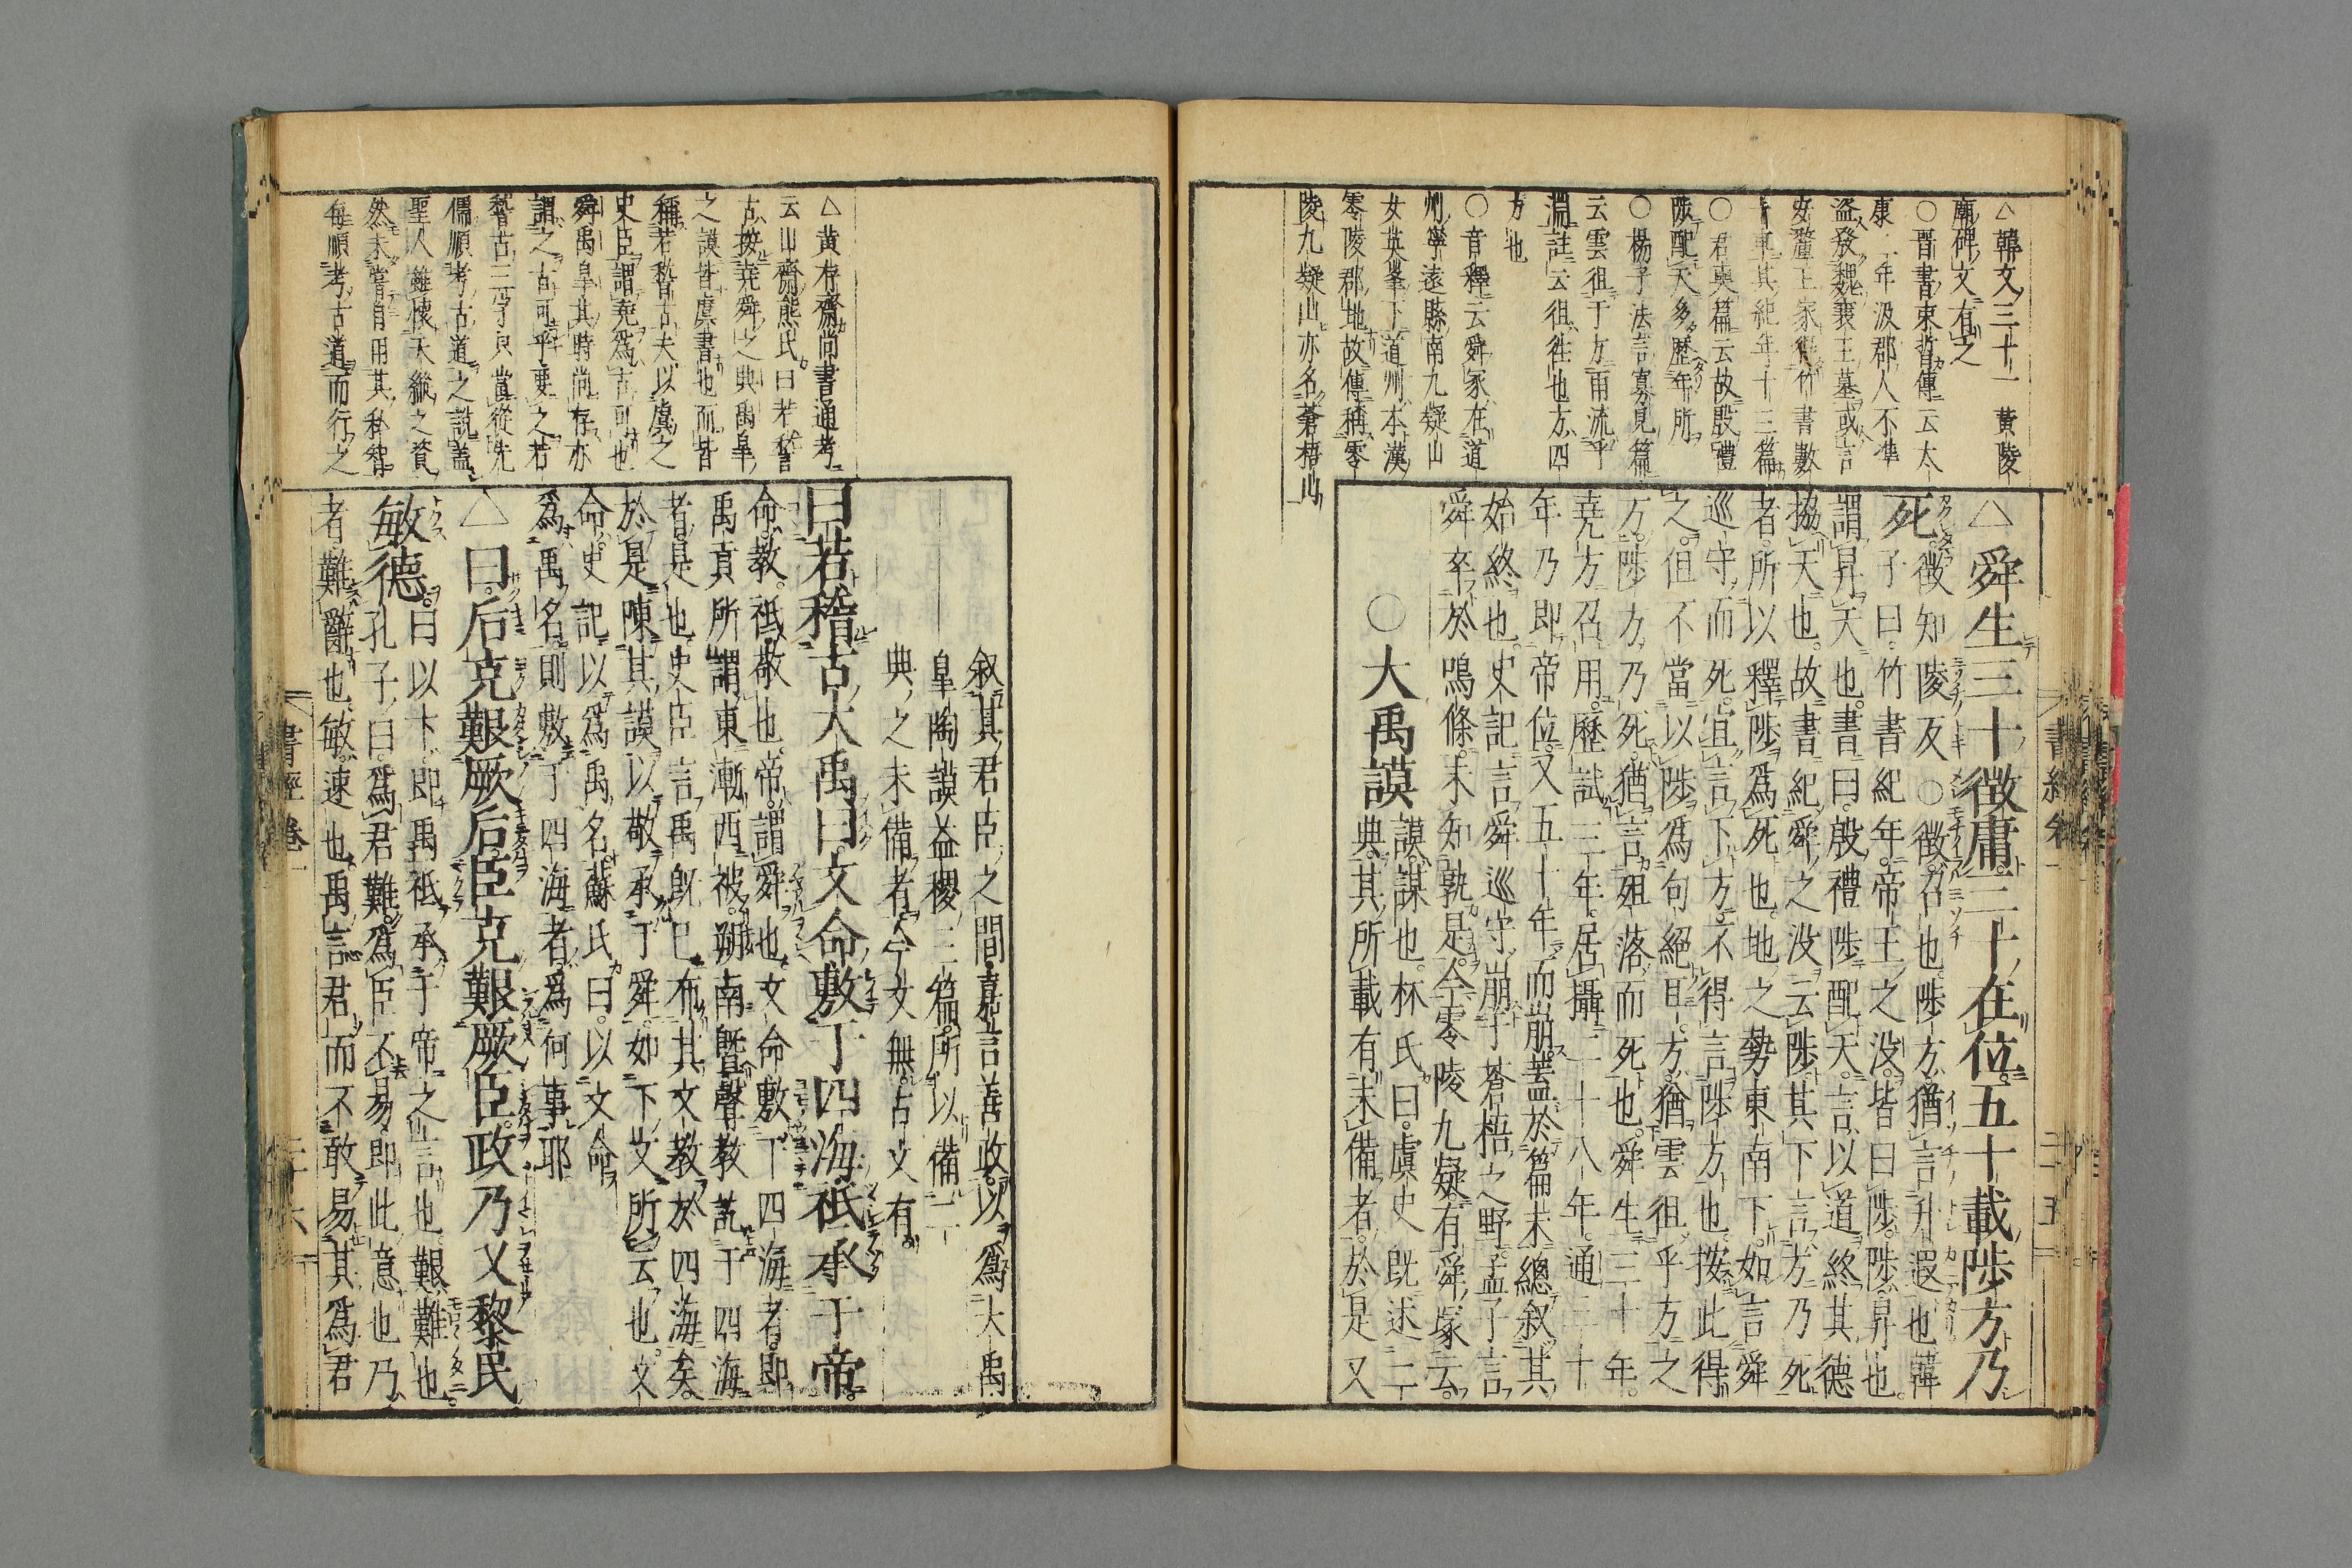 △韓文三十一黃陵
廟碑文有之
○晋書束晳傳云太
康二年汲郡人不準
盜發魏襄王墓或言
安釐王冢得竹書數
十車其紀年十三篇
○君奭篇云故殷禮
陟配天多歷年所
○楊子法言寡見篇
云雲徂于方雨流乎
淵註云徂徃也方四
方也
○音釋云舜冢在道
州寧遠縣南九疑山
女英峯下道州本漢
零陵郡地故傳稱零
陵九疑山亦名蒼梧山
△舜生三十徵庸三十在位五十載陟方乃
死徵知陵反○徵召也陟方猶言升遐也韓
子曰竹書紀年帝王之没皆曰陟陟昇也
謂昇天也書曰殷禮陟配天言以道終其德
協天也故書紀舜之没云陟其下言方乃死
者所以釋陟爲死也地之勢東南下如言舜
巡守而死宜言下方不得言陟方也按此得
之但不當以陟爲句絶耳方猶雲徂乎方之
方陟方乃死猶言殂落而死也舜生三十年
堯方召用歷試三年居攝二十八年通三十
年乃即帝位又五十年而崩蓋於篇末總叙其
始終也史記言舜巡守崩于蒼梧之野孟子言
舜卒於鳴條未知孰是今零陵九疑有舜塚云
○大禹謨
謨謀也林氏曰虞史旣述二
典其所載有未備者於是又
書經卷一
二十五
叙其君臣之間嘉言善政以爲大禹
皐陶謨益稷三篇所以備二
典之未備者今文無古文有
曰若稽古大禹曰文命敷于四海祗承于帝
命教祗敬也帝謂舜也文命敷于四海者即
禹貢所謂東漸西被朔南曁聲教訖于四海
者是也史臣言禹旣已布其文教於四海矣
於是陳其謨以敬承于舜如下文所云也文
命史記以爲禹名蘇氏曰以文命
爲禹名則敷于四海者爲何事耶
△曰后克艱厥后臣克艱厥臣政乃乂黎民
敏德曰以下即禹祗承于帝之言也艱難也
孔子曰爲君難爲臣不易即此意也乃
者難辭也敏速也禹言君而不敢易其爲君
△黃存齋尚書通考
云山齋熊氏曰若稽
古按堯舜之典禹皐
之謨皆虞書也而皆
稱若稽古夫以虞之
史臣謂堯爲古可也
舜禹皐其時尚存亦
謂之古可乎要之若
稽古三字只當從先
儒順考古道之説蓋
聖人雖懷天縱之資
然未嘗自用其私智
每順考古道而行之
書經卷一
二十六